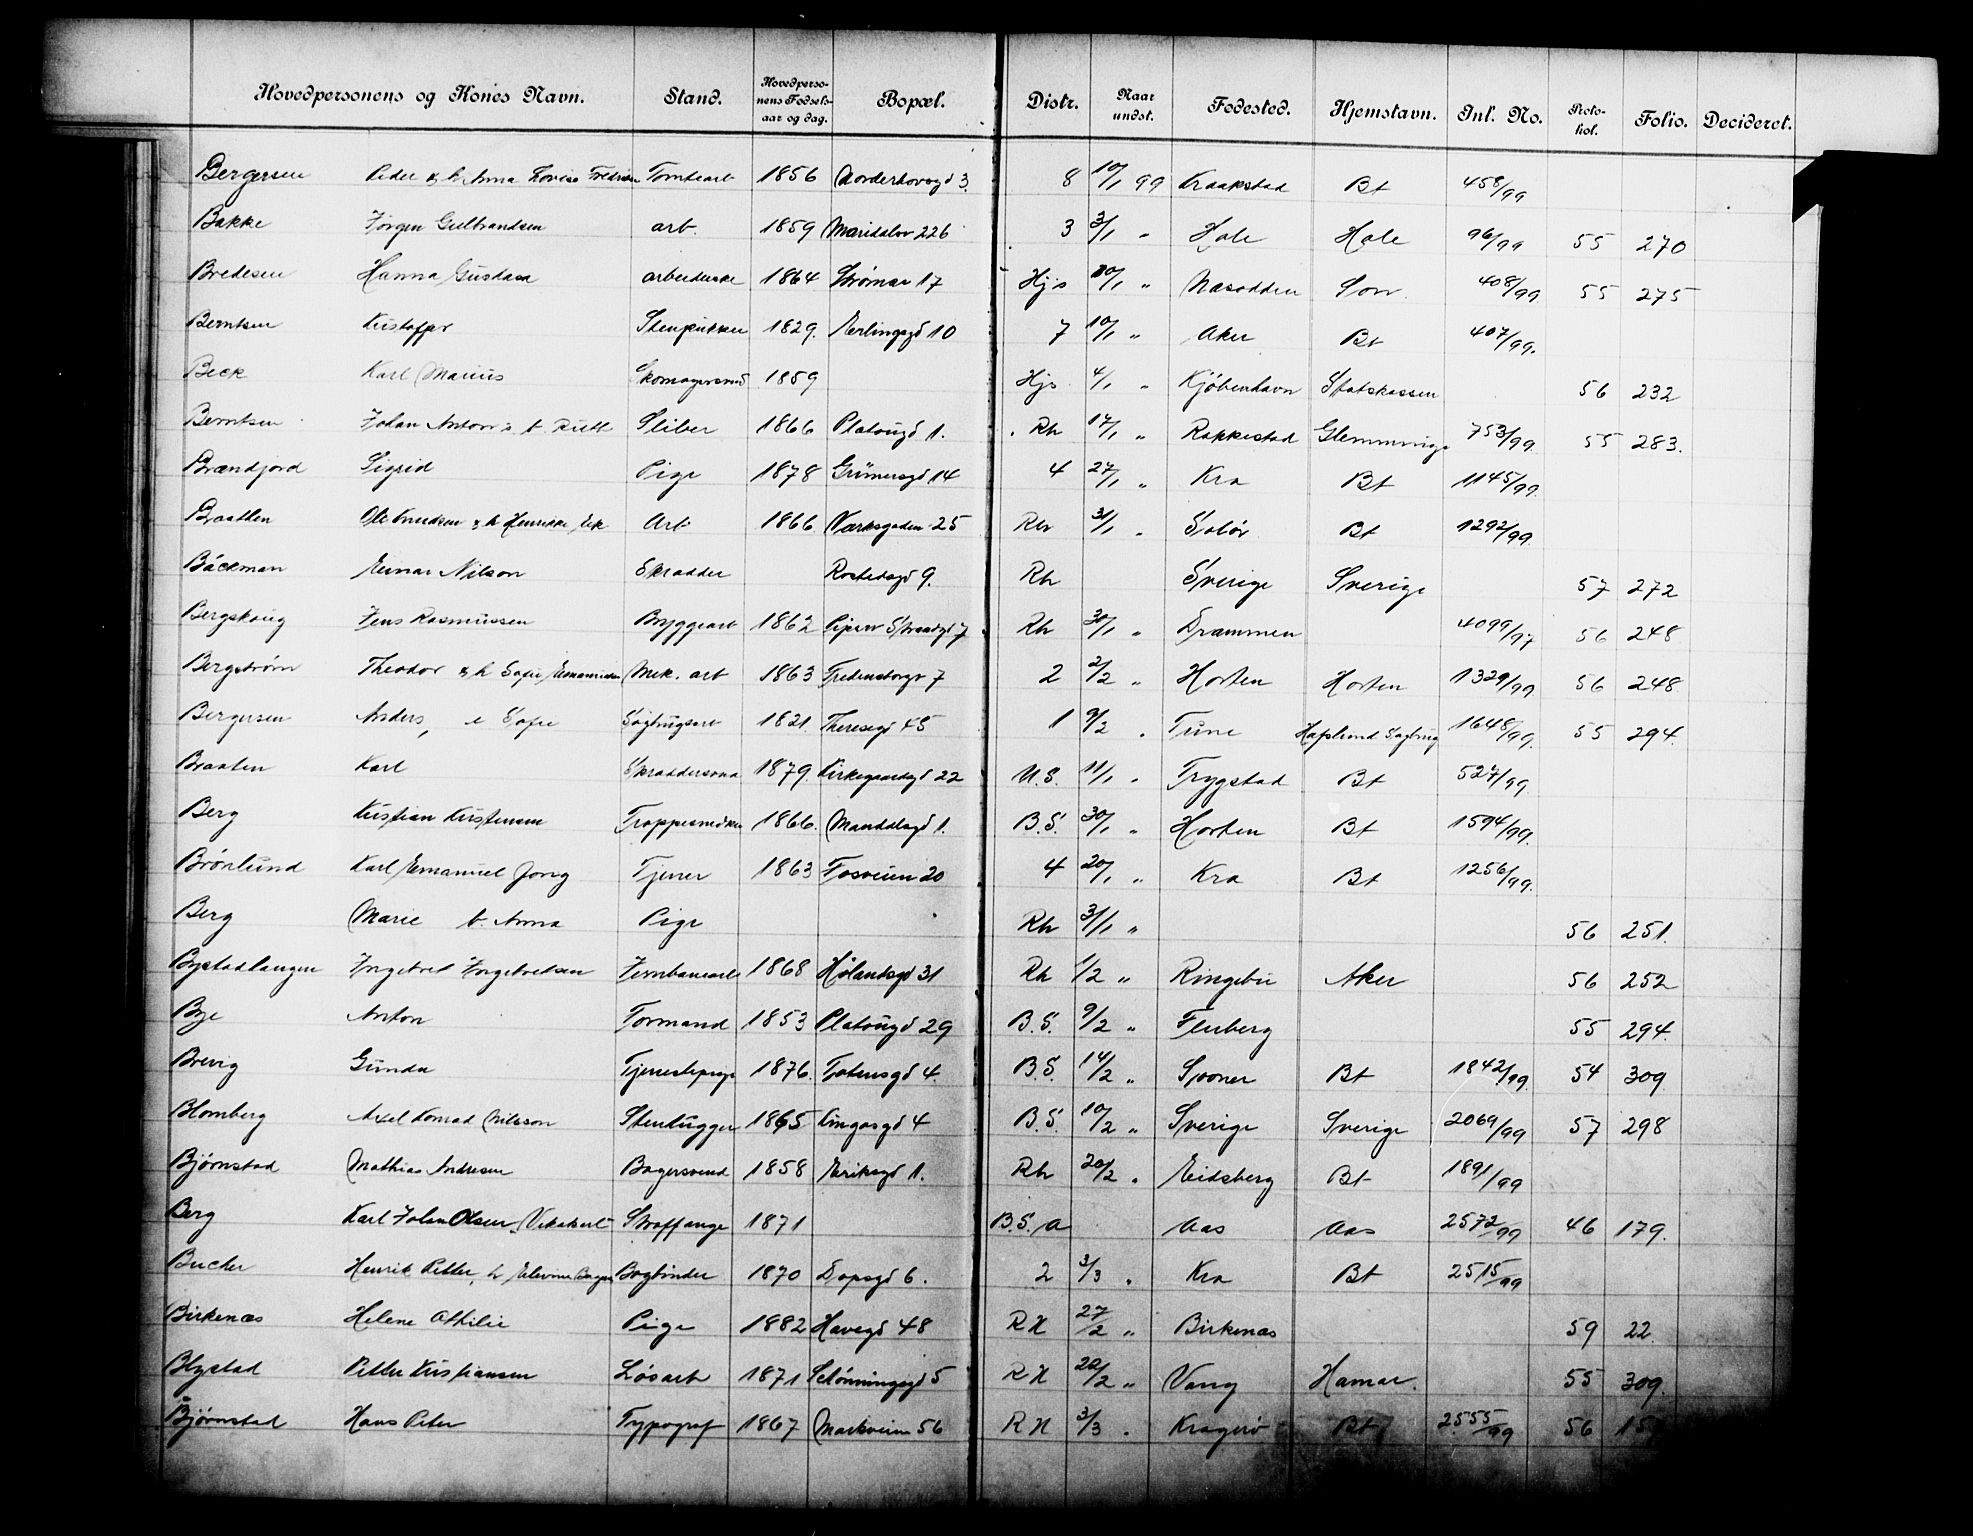 Hovedpersonens og Kones Navn. Stand. Hovedpersonens Fødselsaar og dag. Bopæl. Distr. Naar undst. Fødested. Hjemstavn. Inl. No. Protokol. Folio. Decideret.
Bergersen Peder & h Anna Lovise Tomtearb 1856 Norderhovsgd 3. 8 10/1 99 Kraakstad Bt 458/99
Bakke Jørgen Gulbrandsen arb. 1859 Maridalsv 226 3 3/1 " Hole Hole 96/99 55 270
Bredesen Hanna Gustava arbeiderske 1864 Strømsv 17 Hjs 10/1 " Næsodden Son 408/99 55 275
Berntsen Kristoffer Stenpukker 1829. Erlingsgd 10 7 10/1 " Aker Bt 407/99.
Beck Karl Marius Skomagersvend 1859 Hjs 4/1 " Kjöbenhavn Statskassen 56 232
Berntsen Johan Anton Sliber 1866 Platougd 1. Rh 17/1 " Rakkestad Glemminge 753/99. 55 283.
Brændjord Sigrid Pige 1878 Grünersgd 14 4 27/1 " Kra Bt 1145/99.
Braathen Ole Knudsen & h Henrikke Arb 1866 Verksgaden 25 Rh 31/1 " Solör Bt 1292/99.
Bäckman Einar Nilson Skrædder Rostedsgd 9. Rh Sverige Sverige 57 272
Bergskaug Jens Rasmussen Bryggearb 1862 Pipervs Strandgd 7 Rh 30/1 " Drammen 4099/97 56 248
Bergstrøm Theodor & h Sofie Mek. arb 1863 Fredenstorgv 7 2 2/2 " Horten Horten 1329/99 56 248.
Bergersen Anders, e Sofie Sagbrugsarb 1821. Theresegd 45 1 9/2 " Tune Hafslund Sagbrug 1648/99. 55 294.
Braaten Karl Skræddersvend 1879. Kirkegaardsgd 22 U.S. 11/1 " Trygstad Bt 527/99.
Berg Kristian Kristensen Trappesnedker 1866. Manddlsgd 1. B.S. 30/1 " Horten Bt 1594/99.
Brönlund Karl Emanuel Tjener 1863 Fosveien 20 4 20/1 " Kra Bt 1256/99.
Berg Marie b. Anna Pige Rh 3/1 " 56 251.
Bystadlangen Ingebret Ingebretsen Jernbanearb 1868 Hølandsgd 31 Rh 1/2 " Ringebu Aker 56 252
Bye Anton Formand 1853 Platougd 29 B.S. 9/2 " Flesberg 55 294.
Brevig Gunda Tjenestepige 1876. Totensgd 4. B.S. 14/2 " Spooner Bt 1842/99. 54 309
Blomberg Axel Konrad Nilsson Stenhugger 1865 Kingosgd 4 B.S. 10/2 " Sverige Sverige 2069/99 57 298
Bjørnstad Mathias Andresen Bagersvend 1858 Eriksgd 1. Rh 20/2 " Eidsberg Bt 1891/99
Berg Karl Johan Olsen Straffange 1871 B.S. a Aas Aas 2572/99 46 179.
Bucher Henrik Petter, h Bogbinder 1870 Dopsgd 6. 2 3/3 " Kra Bt 2515/99
Birkenæs Helene Othilie Pige 1882 Havegd 48 RN 27/2 " Birkenæs 59 22
Blystad Petter Kristiansen Løsarb 1871 Schönningsgd 5 RN 20/2 " Vang Hamar. 55 309.
Bjørnstad Hans Peter Typograf 1867 Markveien 56 RN 3/3 " Kragerö Bt 2555/99 56